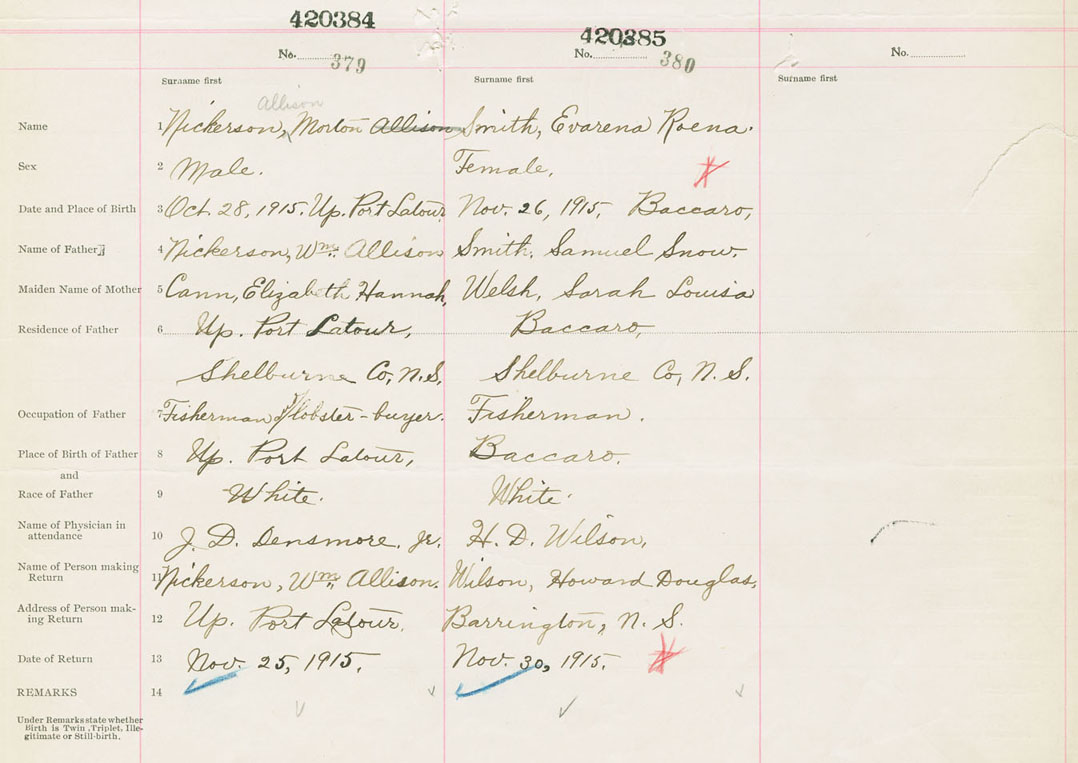 420384 420385
No. 379 No. 380 No.
Surname first Surname first Surname first
Allison
Name 1 Nickerson, Morton Allison Smith, Evarena Roena.
Sex 2 Male. Female.
Date and Place of Birth 3 Oct. 28, 1915. Up. Port Latour Nov. 26, 1915, Baccaro,
Name of Father 4 Nickerson, Wm. Allison Smith, Samuel Snow.
Maiden Name of Mother 5 Cann, Elizabeth Hannah, Welsh, Sarah Louisa
Residence of Father 6 Up. Port Latour, Baccaro,
Shelburne Co, N.S. Shelburne Co, N. S.
Occupation of Father 7 Fisherman & lobster-buyer. Fisherman.
Place of Birth of Father 8 Up. Port Latour, Baccaro.
and
Race of Father 9 White. White.
Name of Physician in
attendance 10 J. D. Densmore, Jr. H. D. Wilson,
Name of Person making
Return 11 Nickerson, Wm. Allison. Wilson, Howard Douglas,
Address of Person mak-
ing Return 12 Up. Port Latour. Barrington, N. S.
Date of Return 13 Nov. 25, 1915. Nov. 30, 1915.
REMARKS 14
Under Remarks state whether
Birth is Twin, Triplet, Ille-
gitimate or Still-birth.